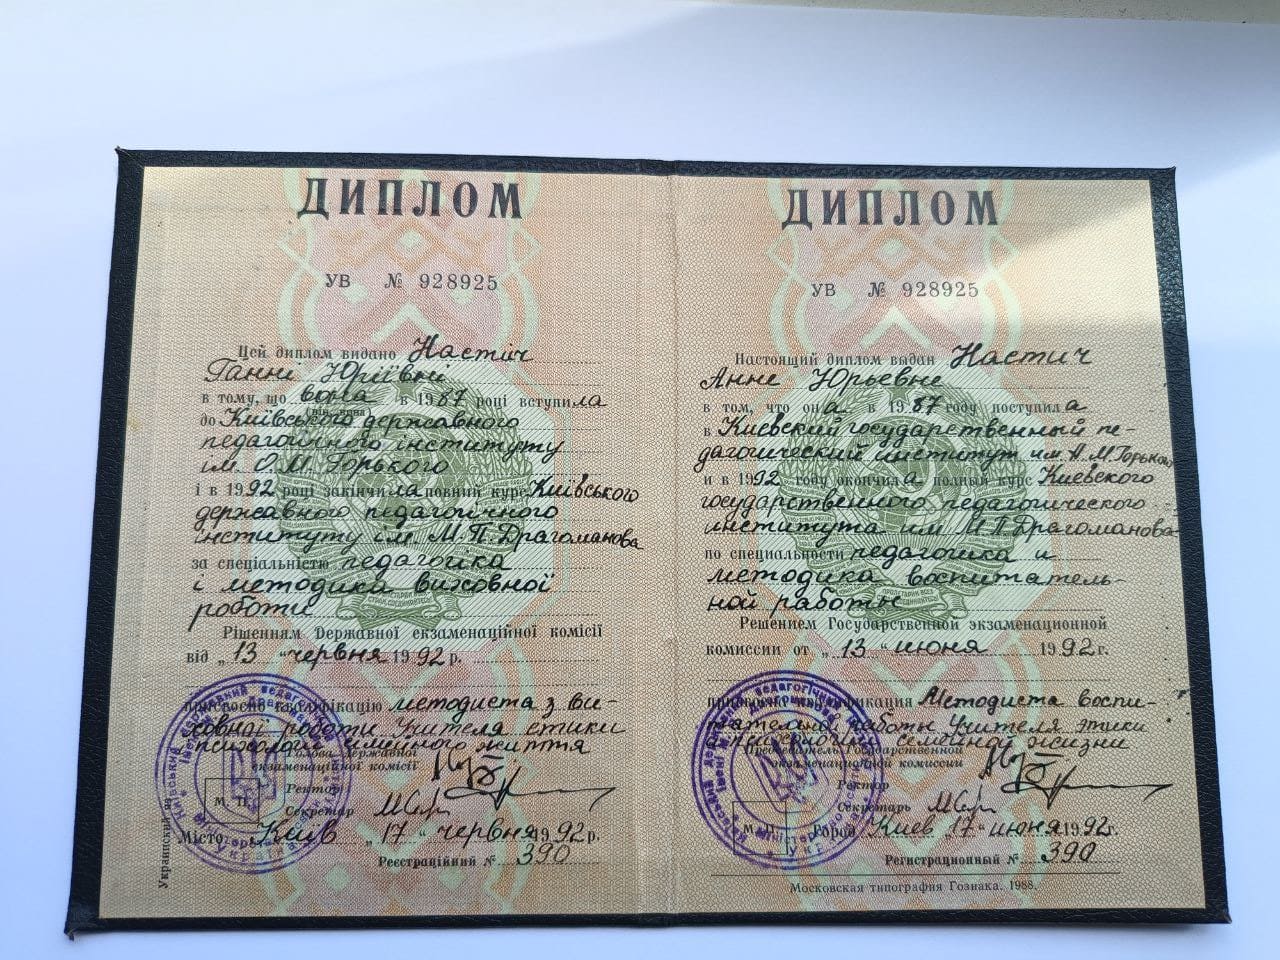 ДИПЛОМ
УВ № 928925
Цей диплом видано Настіч
Ганні Юріївні
в тому, що вона в 1987 році вступила
(він, вона)
до Київського державного
педагогічного інституту
ім О.М. Горького
і в 1992 році закінчила повний курс Київського
державного педагогічного
інституту ім. М.П. Драгоманова
за спеціальністю педагогіка
і методика виховної
роботи
Рішенням Державної екзаменаційної комісії
від „13" червня 1992 р.
присвоєно кваліфікацію методиста з ви-
ховної роботи Учителя етики
психології сімейного життя
Голова Державної
екзаменаційної комісії
Ректор
М. П.
Секретар
Місто Київ „17" червня 1992р.
Реєстраційний № 390
Украинский яз
ДИПЛОМ
УВ № 928925
Настоящий диплом выдан Настич
Анне Юрьевне
в том, что она в 1987 году поступила
в Киевский государственный пе-
дагогический институт им А.М Горького
и в 1992 году окончила полный курс Киевского
государственного педагогического
института им М.П.Драгоманова
по специальности педагогика и
методика воспитатель-
ной работы
Решением Государственной экзаменационной
комиссии от „13" июня 1992г.
присвоена квалификация Методиста воспи-
тательной работы Учителя этики
и психологии семейной жизни
Председатель Государственной
экзаменационной комиссии
Ректор
Секретарь
Город Киев 17 июня 1992г.
Регистрационный № 390
Московская типография Гознака. 1988.